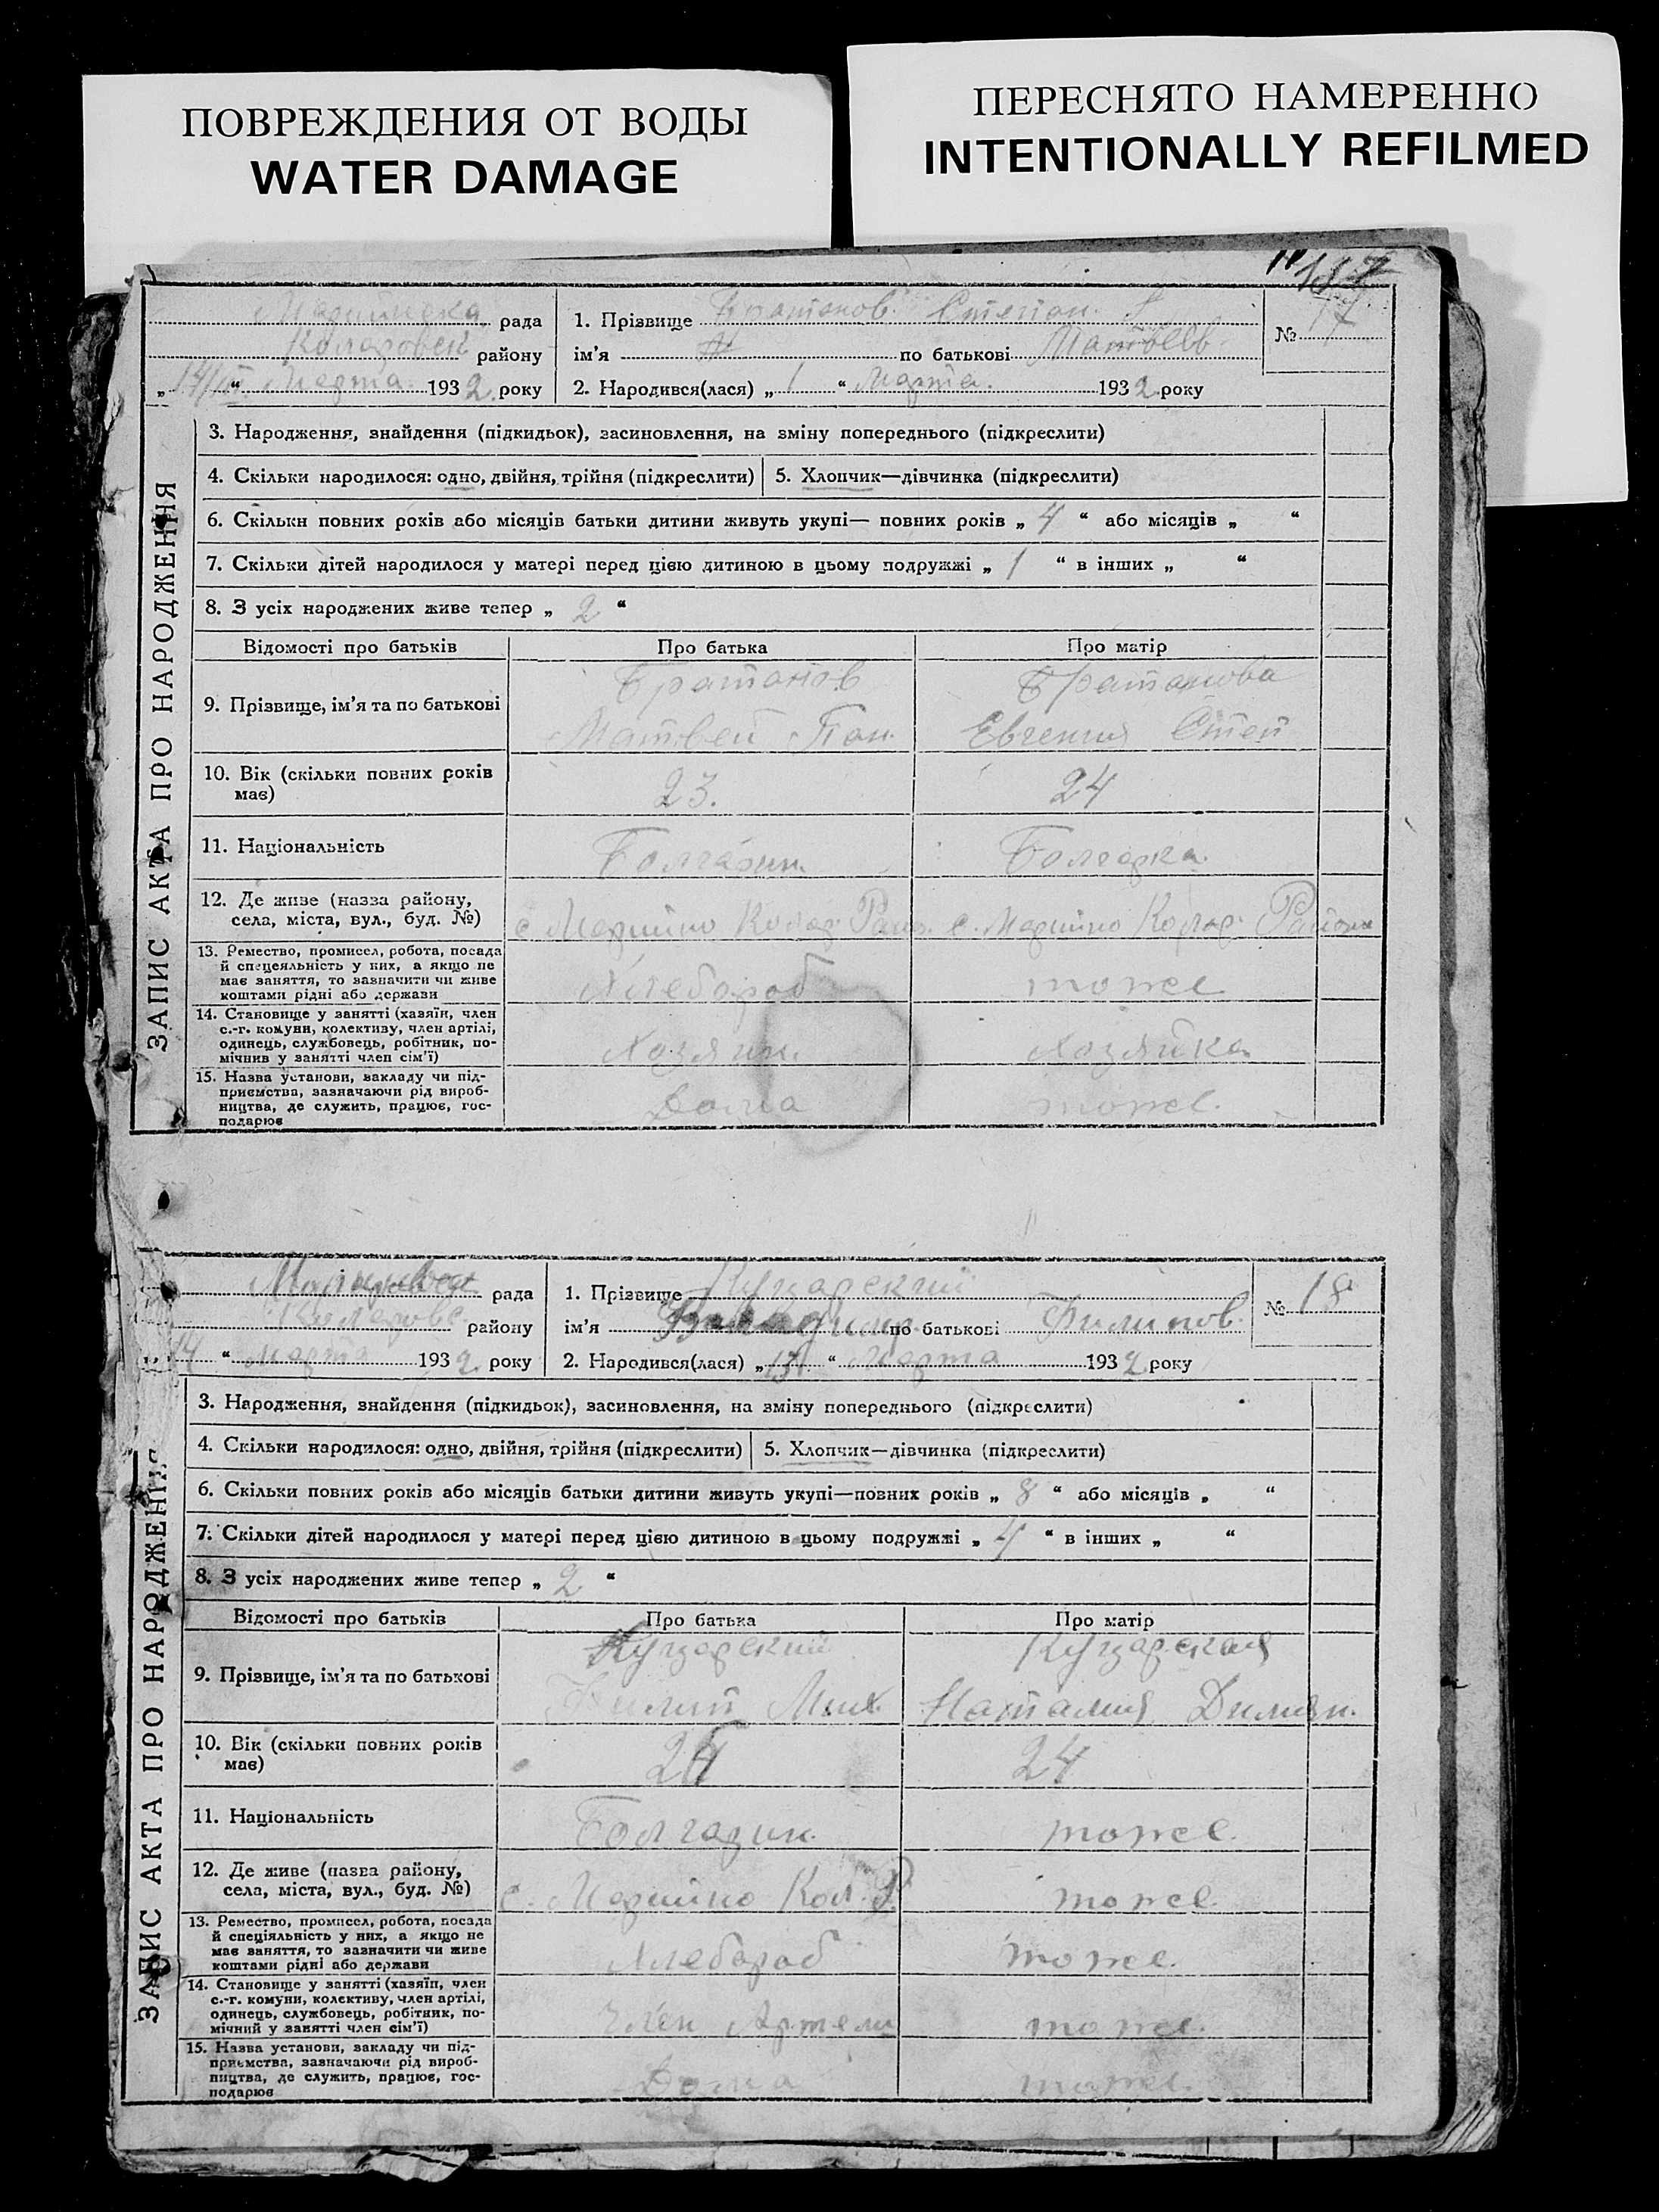 ПОВРЕЖДЕНИЯ ОТ ВОДЫ
WATER DAMAGE
ПЕРЕСНЯТО НАМЕРЕННО
INTENTIONALLY REFILMED
ЗАПИС АКТА ПРО НАРОДЖЕННЯ
рада
районУ
Марта 1932 року
1. Прізвище Братанов Степан
ім'я по батькові Матвеев.
№ 17
2. Народився(лася) „1“ Марта. 1932 року
3. Народження, знайдення (підкидьок), засиновлення, на зміну попереднього (підкреслити)
4. Скільки народилося: одно, двійня, трійня (підкреслити)
5. Хлопчик—дівчинка (підкреслити)
6. Скільки повних років або місяців батьки дитини живуть укупі— повних років „4“ або місяців „ “
7. Скільки дітей народилося у матері перед цією дитиною в цьому подружжі „1“ в інших „ “
8. З усіх народжених живе тепер „2“
Відомості про батьків Про батька Про матір
9. Прізвище, ім'я та по батькові
Братанов Братанова
Матвей Пан. Евгения Степ
10. Вік (скільки повних років
має)
23. 24
11. Національність Болгарин. Болгарка.
12. Де живе (назва району,
села, міста, вул., буд. №)
с Марийно Колар. Район. с. Марийно Колар. Района
13. Ремество, промисел, робота, посада
й спецеяльність у них, а якщо не
має заняття, то зазначити чи живе
коштами рідні або держави
Хлебороб тоже
14. Становище у занятті (хазяїн, член
с.-г. комуни, колективу, член артілі,
одинець, службовець, робітник, по-
мічник у занятті член сім'ї)
Хозяин. Хозяйка
15. Назва установи, закладу чи під-
приємства, зазначаючи рід вироб-
ництва, де служить, працює, гос-
подарює
Дома тоже.
ЗАПИС АКТА ПРО НАРОДЖЕННЯ
рада
району
14 “ Марта 1932 року
1. Прізвище Куцарский
ім'я по батькові Филипов.
№ 18
2. Народився(лася) „13“ Марта 1932 року
3. Народження, знайдення (підкидьок), засиновлення, на зміну попереднього (підкреслити)
4. Скільки народилося: одно, двійня, трійня (підкреслити)
5. Хлопчик—дівчинка (підкреслити)
6. Скільки повних років або місяців батьки дитини живуть укупі—повних років „8“ або місяців „ “
7. Скільки дітей народилося у матері перед цією дитиною в цьому подружжі „4“ в інших „ “
8. З усіх народжених живе тепер „2“
Відомості про батьків Про батька Про матір
9. Прізвище, ім'я та по батькові
Куцарский Куцарская
Филип Мих. Наталия Димиян.
10. Вік (скільки повних років
має)
24
11. Національність Болгарин. тоже.
12. Де живе (назва району,
села, міста, вул., буд. №)
с. Марийно Кол. Р. тоже.
13. Ремество, промисел, робота, посада
й спеціяльність у них, а якщо не
має заняття, то зазначити чи живе
коштами рідні або держави
Хлебороб тоже.
14. Становище у занятті (хазяїн, член
с.-г. комуни, колективу, член артілі,
одинець, службовець, робітник, по-
мічний у занятті член сім'ї)
Член Артели тоже.
15. Назва установи, закладу чи під-
приємства, зазначаючи рід вироб-
ництва, де служить, працює, гос-
подарює
Дома тоже.